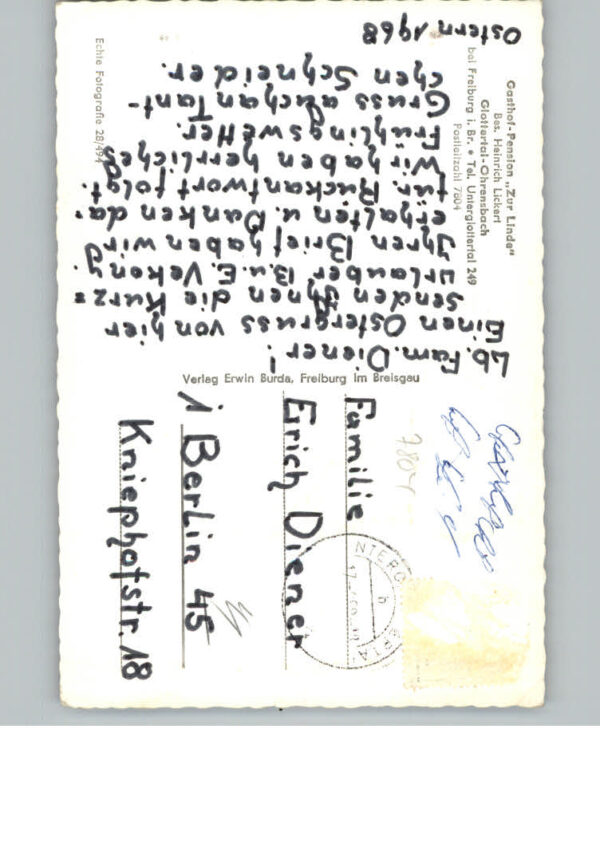 Gasthof-Pension „Zur Linde"
Bes. Heinrich Lickert
Glottertal-Ohrensbach
bei Freiburg i. Br. • Tel. Unterglottertal 249
Postleitzahl 7804
Lb. Fam. Diener!
Einen Ostergruss von hier
senden Ihnen die Kurz=
urlauber B.u.E. Vekony.
Ihren Brief haben wir
erhalten u. Danken da-
für. Rückantwort folgt.
Wir haben herrliches
Frühlingswetter.
Gruss auch an Tant-
chen Schneider.
Ostern 1968
Echte Fotografie 28/494
Verlag Erwin Burda, Freiburg im Breisgau
7804
Familie
Erich Diener
1 Berlin 45
Kniephofstr. 18